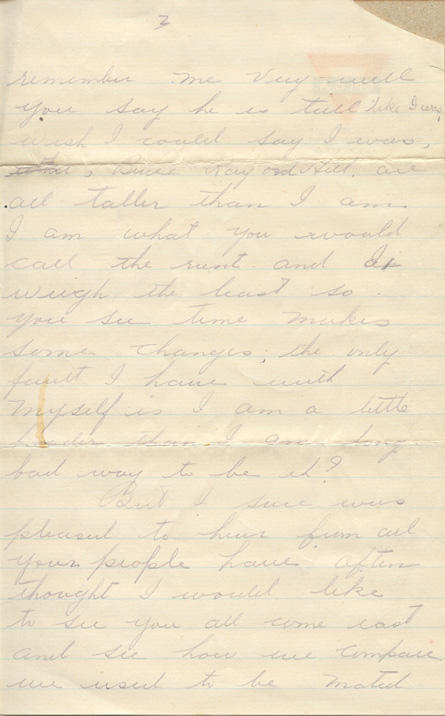 2
remember me very well
you say he is tall like I was,
wish I could say I was,
Bruce Ray and Hill, are
all taller than I am.
I am what you would
call the runt and
weigh the least so
you see time makes
some changes; the only
fault I have with
myself is I am a little
than I am long
bad way to be eh?
But I sure was
pleased to hear from all
your people have often
thought I would like
to see you all come east
and see how we compare
we used to be mated